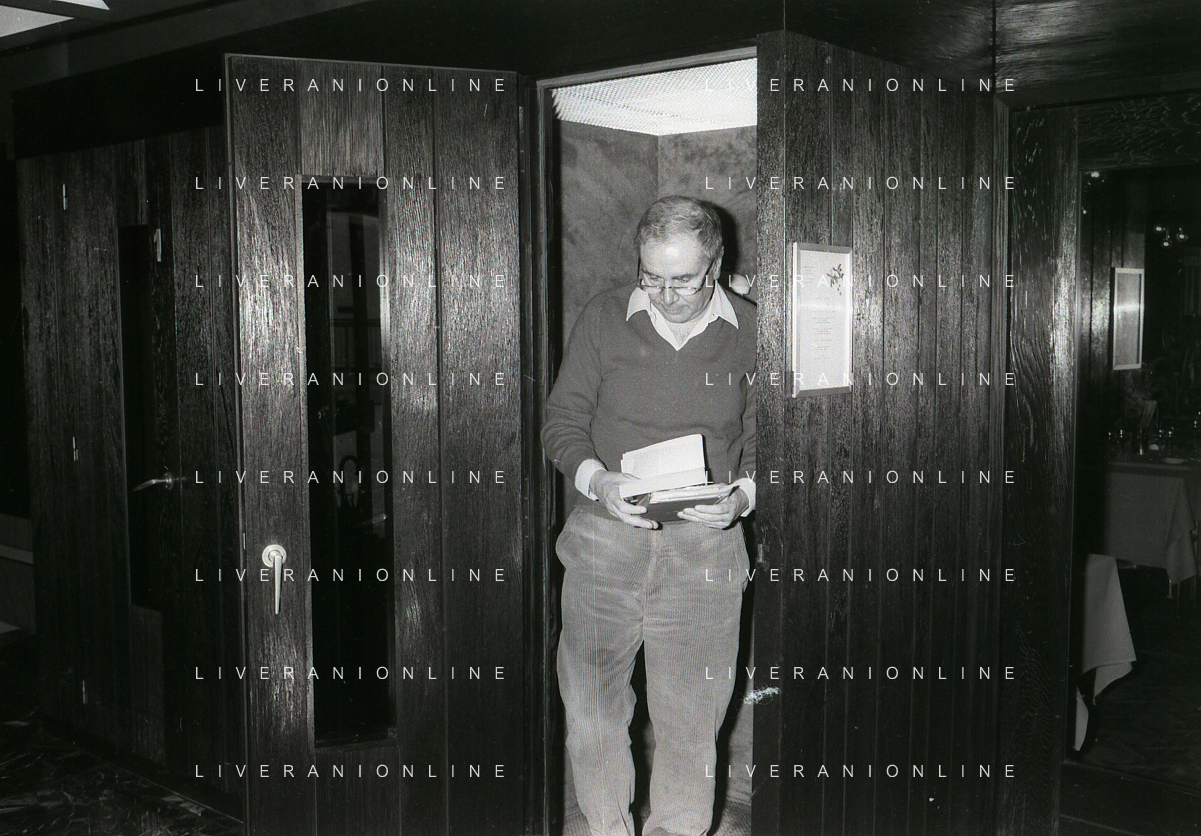 LIVERANIONLINE LIVERANIONLINE
LIVERANIONLINE LIVERANIONLINE
LIVERANIONLINE LIVERANIONLINE
LIVERANIONLINE LIVERANIONLINE
LIVERANIONLINE LIVERANIONLINE
LIVERANIONLINE LIVERANIONLINE
LIVERANIONLINE LIVERANIONLINE
LIVERANIONLINE LIVERANIONLINE